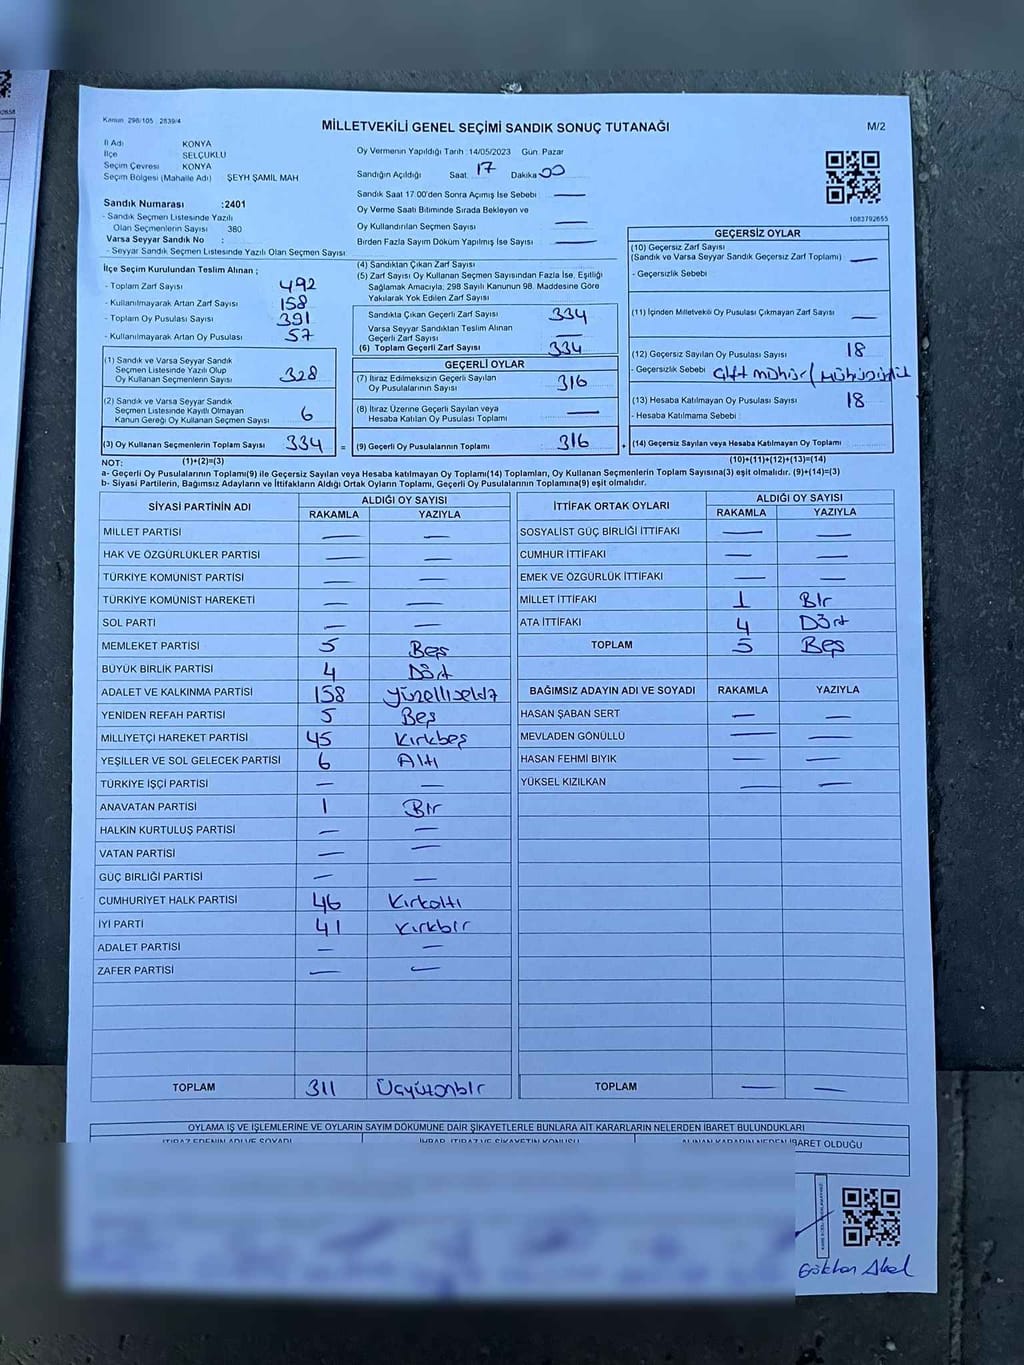 Kanun 298/105 . 2839/4
MİLLETVEKİLİ GENEL SEÇİMİ SANDIK SONUÇ TUTANAĞI
M/2
İl Adı KONYA
İlçe SELÇUKLU
Seçim Çevresi KONYA
Seçim Bölgesi (Mahalle Adı) ŞEYH ŞAMİL MAH
Sandık Numarası :2401
- Sandık Seçmen Listesinde Yazılı
Olan Seçmenlerin Sayısı 380
Varsa Seyyar Sandık No :
- Seyyar Sandık Seçmen Listesinde Yazılı Olan Seçmen Sayısı
Oy Vermenin Yapıldığı Tarih :14/05/2023 Gün Pazar
Sandığın Açıldığı Saat 17 Dakika 00
Sandık Saat 17:00'den Sonra Açımış İse Sebebi —
Oy Verme Saati Bitiminde Sırada Bekleyen ve
Oy Kullandırılan Seçmen Sayısı —
Birden Fazla Sayım Döküm Yapılmış İse Sayısı —
1083792655
İlçe Seçim Kurulundan Teslim Alınan ;
- Toplam Zarf Sayısı 492
- Kullanılmayarak Artan Zarf Sayısı 158
- Toplam Oy Pusulası Sayısı 391
- Kullanılmayarak Artan Oy Pusulası 57
(1) Sandık ve Varsa Seyyar Sandık
Seçmen Listesinde Yazılı Olup
Oy Kullanan Seçmenlerin Sayısı 328
(2) Sandık ve Varsa Seyyar Sandık
Seçmen Listesinde Kayıtlı Olmayan
Kanun Gereği Oy Kullanan Seçmen Sayısı 6
(3) Oy Kullanan Seçmenlerin Toplam Sayısı 334 =
(4) Sandıktan Çıkan Zarf Sayısı
(5) Zarf Sayısı Oy Kullanan Seçmen Sayısından Fazla İse, Eşitliği
Sağlamak Amacıyla; 298 Sayılı Kanunun 98. Maddesine Göre
Yakılarak Yok Edilen Zarf Sayısı
Sandıkta Çıkan Geçerli Zarf Sayısı 334
Varsa Seyyar Sandıktan Teslim Alınan
Geçerli Zarf Sayısı —
(6) Toplam Geçerli Zarf Sayısı 334
GEÇERLİ OYLAR
(7) İtiraz Edilmeksizin Geçerli Sayılan
Oy Pusulalarının Sayısı 316
(8) İtiraz Üzerine Geçerli Sayılan veya
Hesaba Katılan Oy Pusulası Toplamı —
(9) Geçerli Oy Pusulalarının Toplamı 316 +
GEÇERSİZ OYLAR
(10) Geçersiz Zarf Sayısı
(Sandık ve Varsa Seyyar Sandık Geçersiz Zarf Toplamı) —
- Geçersizlik Sebebi
(11) İçinden Milletvekili Oy Pusulası Çıkmayan Zarf Sayısı —
(12) Geçersiz Sayılan Oy Pusulası Sayısı 18
- Geçersizlik Sebebi çift mühür/
(13) Hesaba Katılmayan Oy Pusulası Sayısı 18
- Hesaba Katılmama Sebebi
(14) Geçersiz Sayılan veya Hesaba Katılmayan Oy Toplamı
NOT: (1)+(2)=(3) (10)+(11)+(12)+(13)=(14)
a- Geçerli Oy Pusulalarının Toplamı(9) ile Geçersiz Sayılan veya Hesaba katılmayan Oy Toplamı(14) Toplamları, Oy Kullanan Seçmenlerin Toplam Sayısına(3) eşit olmalıdır. (9)+(14)=(3)
b- Siyasi Partilerin, Bağımsız Adayların ve İttifakların Aldığı Ortak Oyların Toplamı, Geçerli Oy Pusulalarının Toplamına(9) eşit olmalıdır.
SİYASİ PARTİNİN ADI ALDIĞI OY SAYISI
RAKAMLA YAZIYLA
MİLLET PARTİSİ — —
HAK VE ÖZGÜRLÜKLER PARTİSİ — —
TÜRKİYE KOMÜNİST PARTİSİ — —
TÜRKİYE KOMÜNİST HAREKETİ — —
SOL PARTİ — —
MEMLEKET PARTİSİ 5 Beş
BÜYÜK BİRLİK PARTİSİ 4 Dört
ADALET VE KALKINMA PARTİSİ 158 Yüzellisekiz
YENİDEN REFAH PARTİSİ 5 Beş
MİLLİYETÇİ HAREKET PARTİSİ 45 Kırkbeş
YEŞİLLER VE SOL GELECEK PARTİSİ 6 Altı
TÜRKİYE İŞÇİ PARTİSİ — —
ANAVATAN PARTİSİ 1 Bir
HALKIN KURTULUŞ PARTİSİ — —
VATAN PARTİSİ — —
GÜÇ BİRLİĞİ PARTİSİ — —
CUMHURİYET HALK PARTİSİ 46 Kırkaltı
İYİ PARTİ 41 Kırkbir
ADALET PARTİSİ — —
ZAFER PARTİSİ — —
TOPLAM 311 Üçyüzonbir
İTTİFAK ORTAK OYLARI ALDIĞI OY SAYISI
RAKAMLA YAZIYLA
SOSYALİST GÜÇ BİRLİĞİ İTTİFAKI — —
CUMHUR İTTİFAKI — —
EMEK VE ÖZGÜRLÜK İTTİFAKI — —
MİLLET İTTİFAKI 1 Bir
ATA İTTİFAKI 4 Dört
TOPLAM 5 Beş
BAĞIMSIZ ADAYIN ADI VE SOYADI RAKAMLA YAZIYLA
HASAN ŞABAN SERT — —
MEVLADEN GÖNÜLLÜ — —
HASAN FEHMİ BIYIK — —
YÜKSEL KIZILKAN — —
TOPLAM — —
OYLAMA İŞ VE İŞLEMLERİNE VE OYLARIN SAYIM DÖKÜMÜNE DAİR ŞİKAYETLERLE BUNLARA AİT KARARLARIN NELERDEN İBARET BULUNDUKLARI
İTİRAZ EDENİN ADI VE SOYADI İHBAR, İTİRAZ VE ŞİKAYETİN KONUSU ALINAN KARARIN NEDEN İBARET OLDUĞU
Gökhan